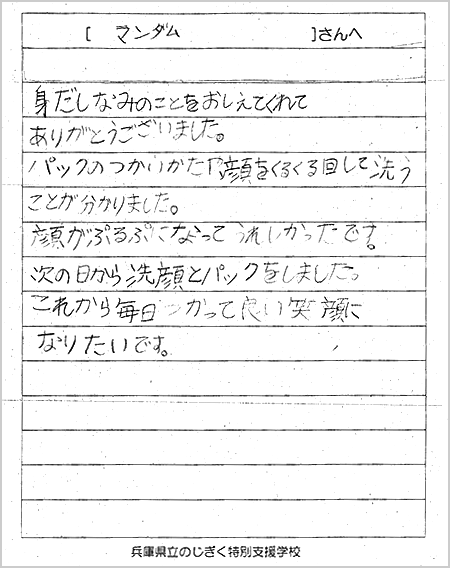 [ マンダム ]さんへ
身だしなみのことをおしえてくれて
ありがとうございました。
パックのつかいかたや顔をくるくる回して洗う
ことが分かりました。
顔がぷるぷるになって うれしかったです。
次の日から洗顔とパックをしました。
これから毎日つかって良い笑顔に
なりたいです。
兵庫県立のじぎく特別支援学校